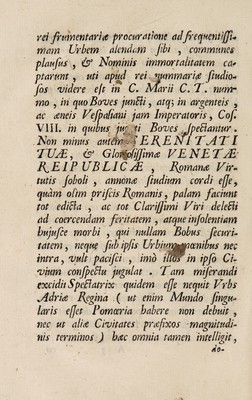 rei frumentariæ procuratione ad frequentissi-
mam Urbem alendam sibi, communes
plausus, & Nominis immortalitatem ca-
ptarunt, uti apud rei nummariæ studio-
sos videre est in C. Marii C. T. num-
mo, in quo Boves juncti, atq; in argenteis,
ac æneis Vespasiani jam Imperatoris, Cos.
VIII. in quibus juncti Boves spectantur.
Non minus autem SERENITATI
TUÆ, & Gloriosissimæ VENETÆ
REIPUBLICÆ, Romanæ Vir-
tutis soboli, annonæ studium cordi esse,
quàm olim priscis Romanis, palam faciunt
tot edicta, ac tot Clarissimi Viri delecti
ad coercendam feritatem, atque insolentiam
hujusce morbi, qui nullam Bobus securi-
tatem, neque sub ipsis Urbium mœnibus nec
intra, vult pacisci, imò illos in ipso Ci-
vium conspectu jugulat. Tam miserandi
excidii Spectatrix quidem esse nequit Urbs
Adriæ Regina (ut enim Mundo singu-
laris esset Pomœria habere non debuit,
nec ut aliæ Civitates præfixos magnitudi-
nis terminos) hæc omnia tamen intelligit,
do-